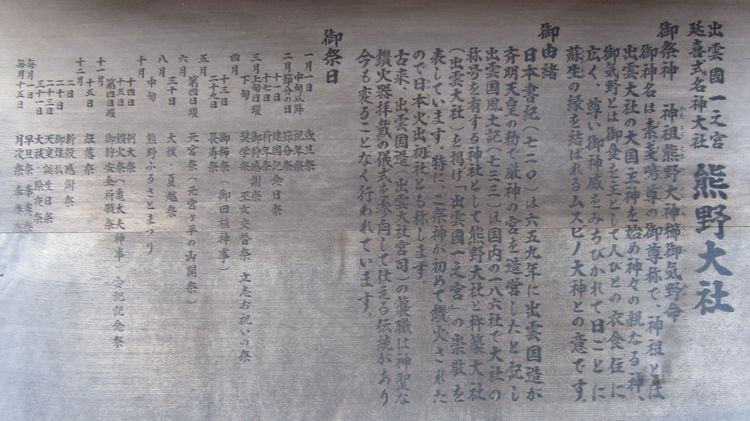 出雲國一之宮
延喜式名神大社 熊野大社
御祭神 神祖熊野大神櫛御気野命
御神名は素戔嗚尊の御尊称で、神祖とは
出雲大社の大国主神を始め神々の親なる神、
御気野とは御食を主として人びとの衣食住に
広く、尊い御神威をみちびかれて日ごとに
蘇生の縁を結ばれるムスビノ大神との意です。
御由緒
日本書紀(七二〇)は六五九年に出雲国造が
斉明天皇の勅で厳神の宮を造営したと記し
出雲国風土記(七三三)は国内の一八六社で大社の
称号を有する神社として熊野大社と杵築大社
(出雲大社)を掲げ「出雲國一之宮」の崇敬を
表しています。特にご祭神が初めて鑽火された
ので日本火出初社とも称します。
古来、出雲国造(出雲大社宮司)の襲職は神聖な
鑽火器拝戴の儀式を参向して仕える伝統があり
今も変ることなく行われています。
御祭日
一月一日 歳旦祭
中旬以降 祝年祭
二月節分の日 節分祭
十一日 建国記念日祭
十七日 祈年祭
三月上旬日曜
下旬 奨学祭 巫女交替祭 立志お祝いの祭
四月十三日 御櫛祭(御田植神事)
二十九日
五月第四日曜 元宮祭(元宮ヶ平の山開祭)
六月三十日 大祓 夏越祭
八月中旬 熊野ふるさとまつり
十月十四日 例大祭
十五日 鑽火祭(亀太夫神事)
第四日曜 御狩安全祈願祭
十一月十五日
十二月二十日 新穀感謝祭
二十三日 天皇誕生日祭
三十一日 大祓 除夜祭
毎月一日
毎月十五日 月次祭